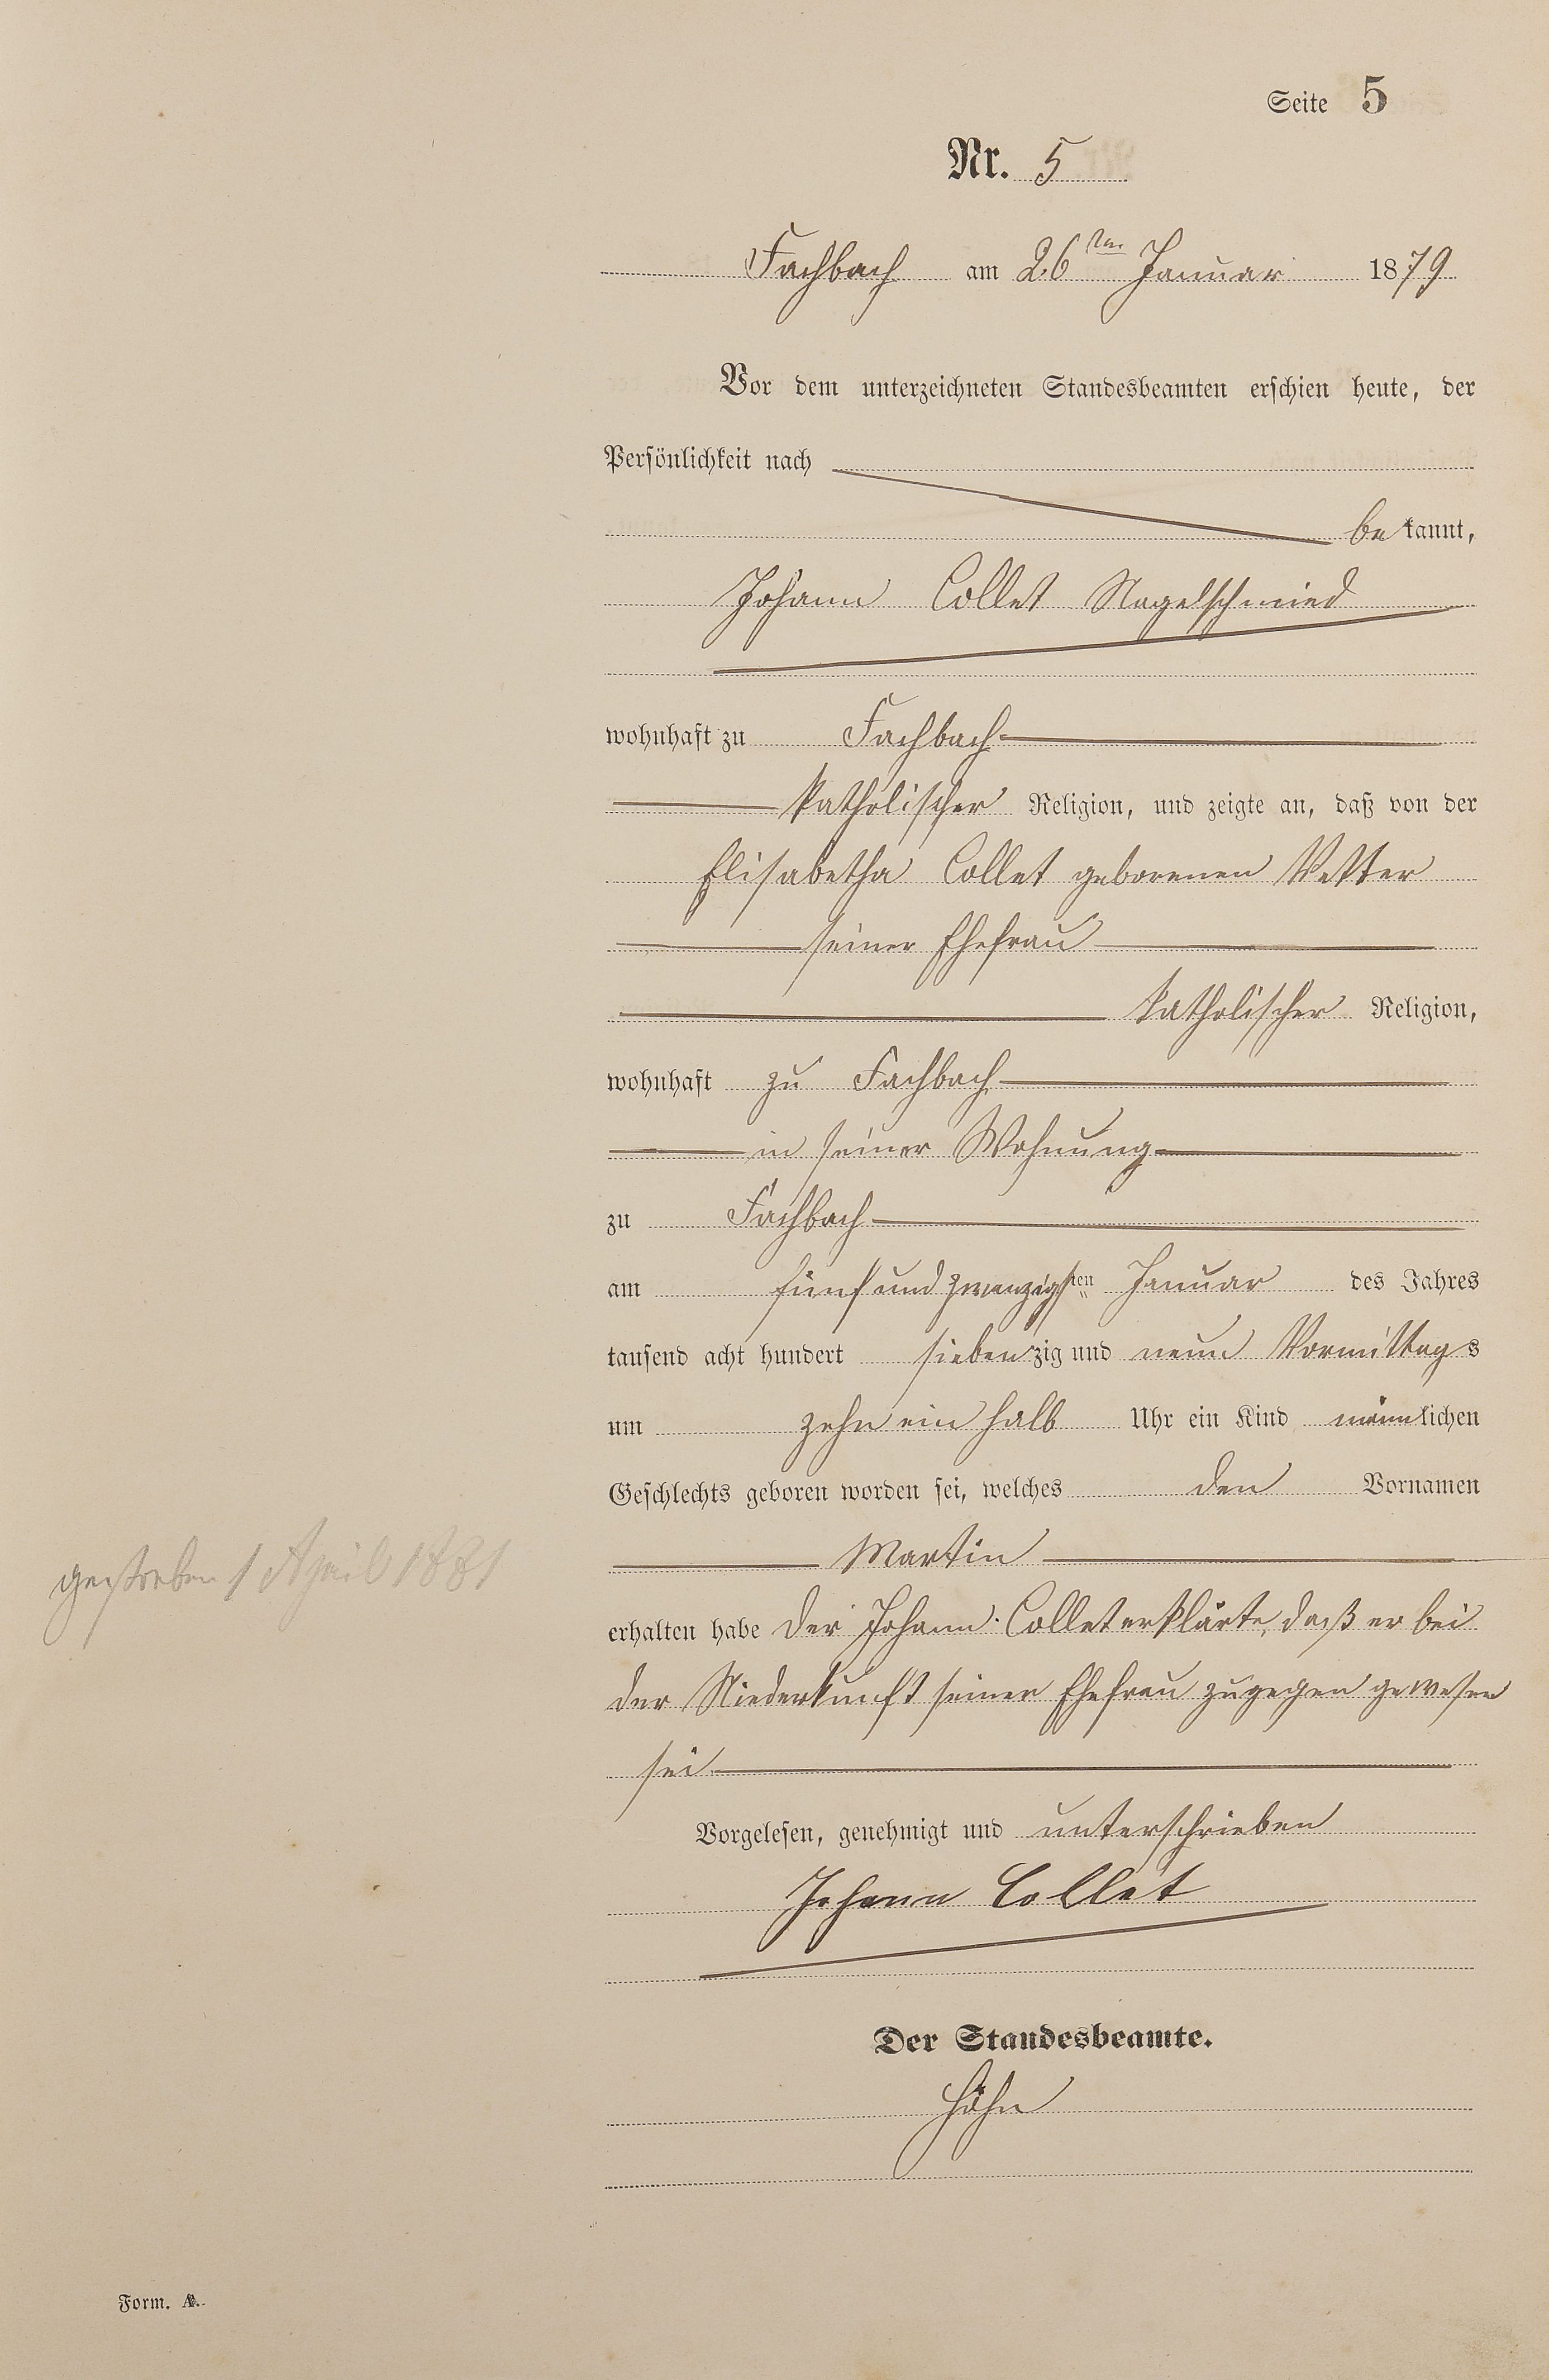 Seite 5
Nr. 5
Fachbach am 26ten Januar 1879
Vor dem unterzeichneten Standesbeamten erschien heute, der
Persönlichkeit nach
bekannt,
Johann Collet Nagelschmied
wohnhaft zu Fachbach
katholischer Religion, und zeigte an, daß von der
Elisabetha Collet geborenen Vetter
seiner Ehefrau
katholischer Religion,
wohnhaft zu Fachbach
in seiner Wohnung
zu Fachbach
am fünf und zwanzigsten Januar des Jahres
tausend acht hundert siebenzig und neun Vormittags
um zehn ein halb Uhr ein Kind männlichen
Geschlechts geboren worden sei, welches den Vornamen
Martin
gestorben 1 April 1881
erhalten habe Der Johann Collet erklärte, daß er bei
der Niederkunft seiner Ehefrau zugegen gewesen
sei.
Vorgelesen, genehmigt und unterschrieben
Johann Collet
Der Standesbeamte.
Höhn
Form. A.